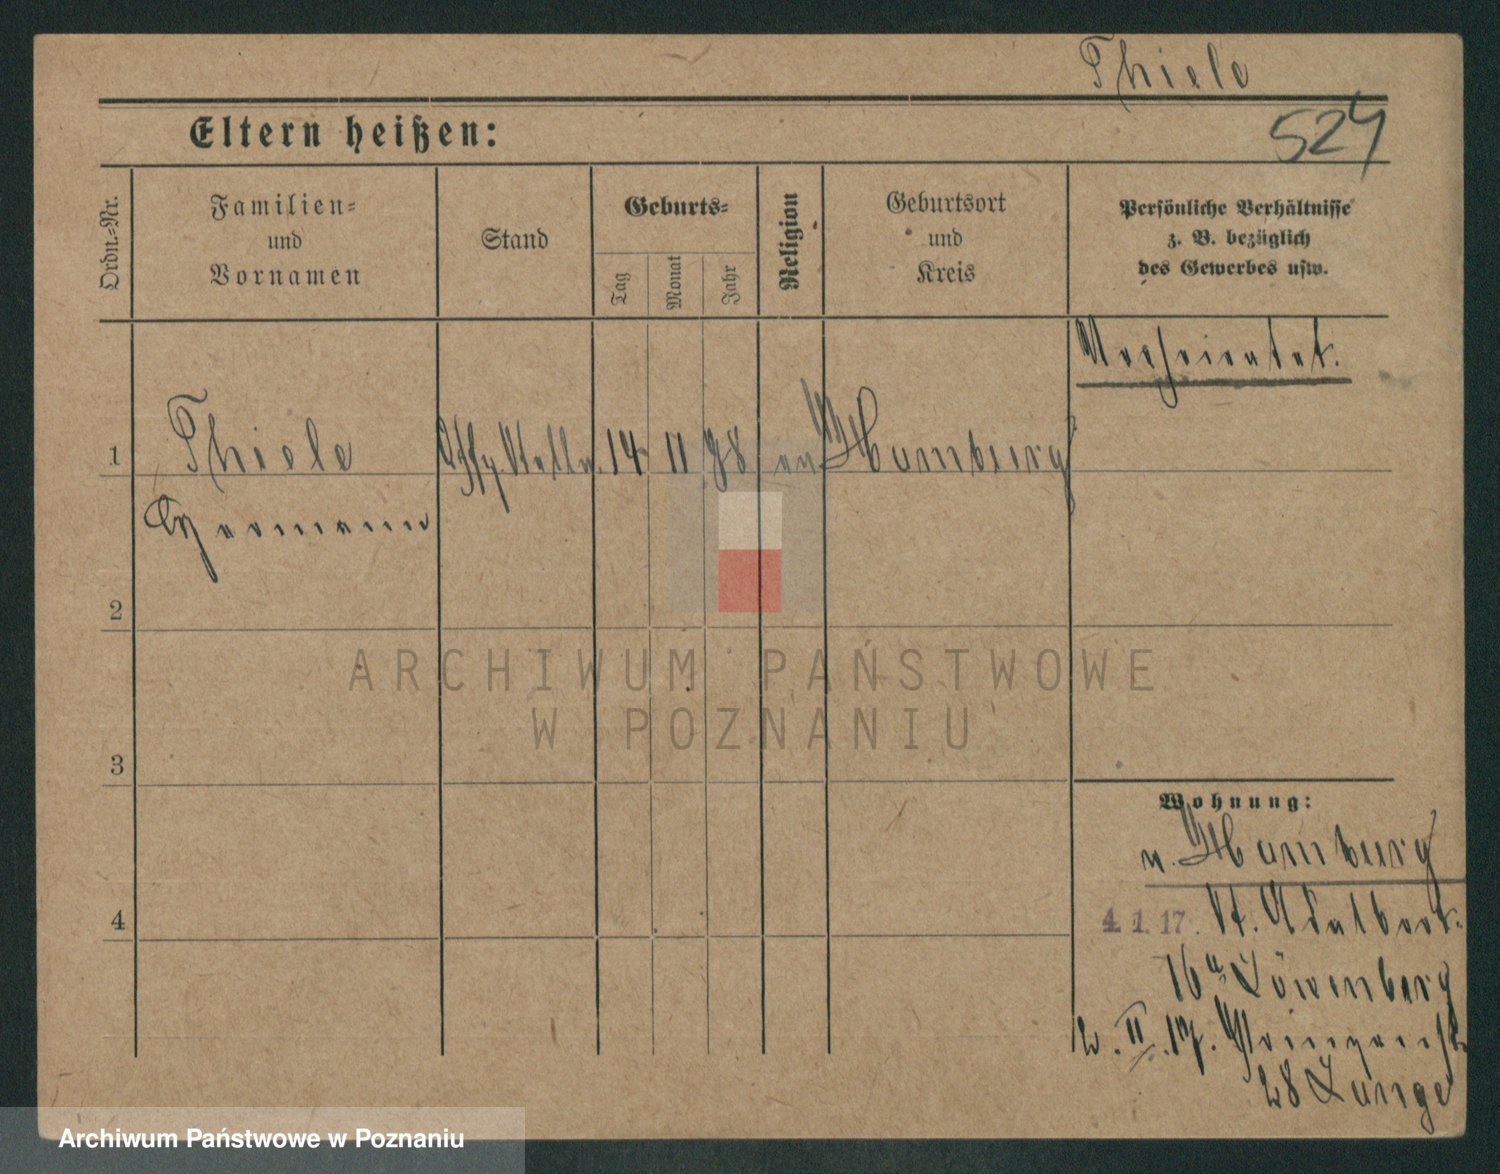 Thiele
524
Eltern heißen:
Ordn.-Nr.
Familien-
und
Vornamen
Stand
Geburts-
Tag
Monat
Jahr
Religion
Geburtsort
und
Kreis
Persönliche Verhältnisse
z. B. bezüglich
des Gewerbes usw.
Verheiratet.
1
Thiele
14
11
78
ev
Hamburg
Hermann
2
ARCHIWUM PAŃSTWOWE
W POZNANIU
3
Wohnung:
v. Hamburg
4
4. 1. 17. St. Adalbert.
16 a Löwenberg
2. II. 17. Prinzenstr
28 Lange
Archiwum Państwowe w Poznaniu